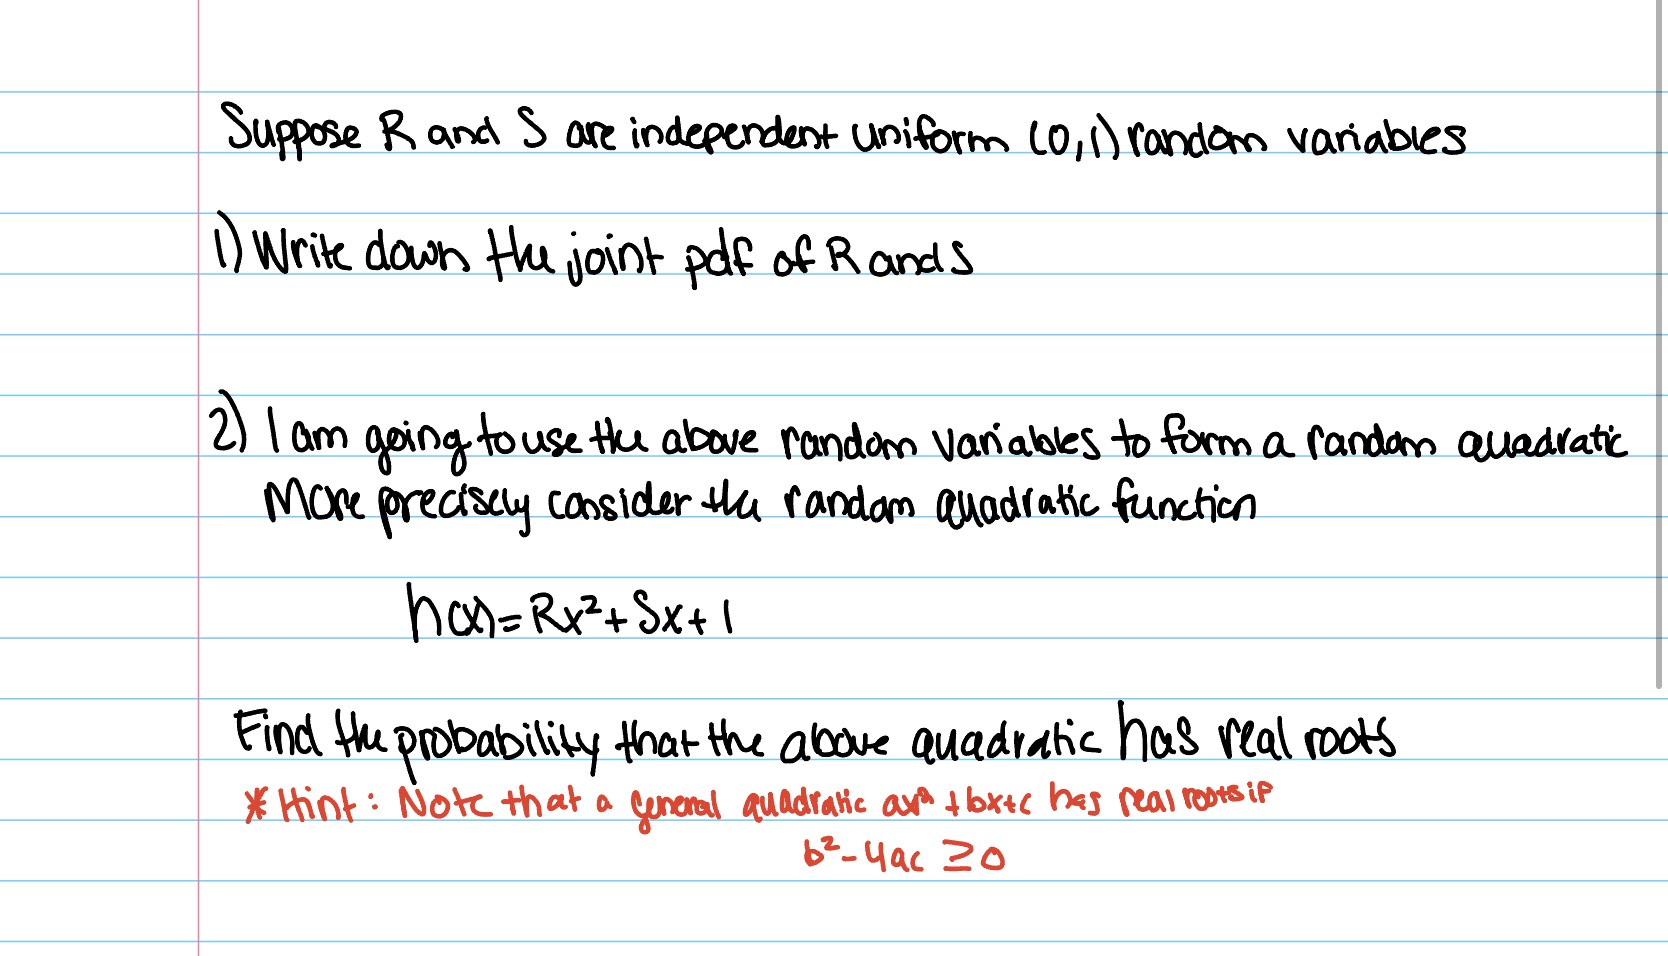 Suppose R and S are independent uniform (0,1) random variables
1) Write down the joint pdf of R and S
2) I am going to use the above random variables to form a random quadratic
More precisely consider the random quadratic function
h(x)=Rx²+Sx+1
Find the probability that the above quadratic has real roots
* Hint: Note that a general quadratic ax²+bx+c has real roots if
b²-4ac ≥0